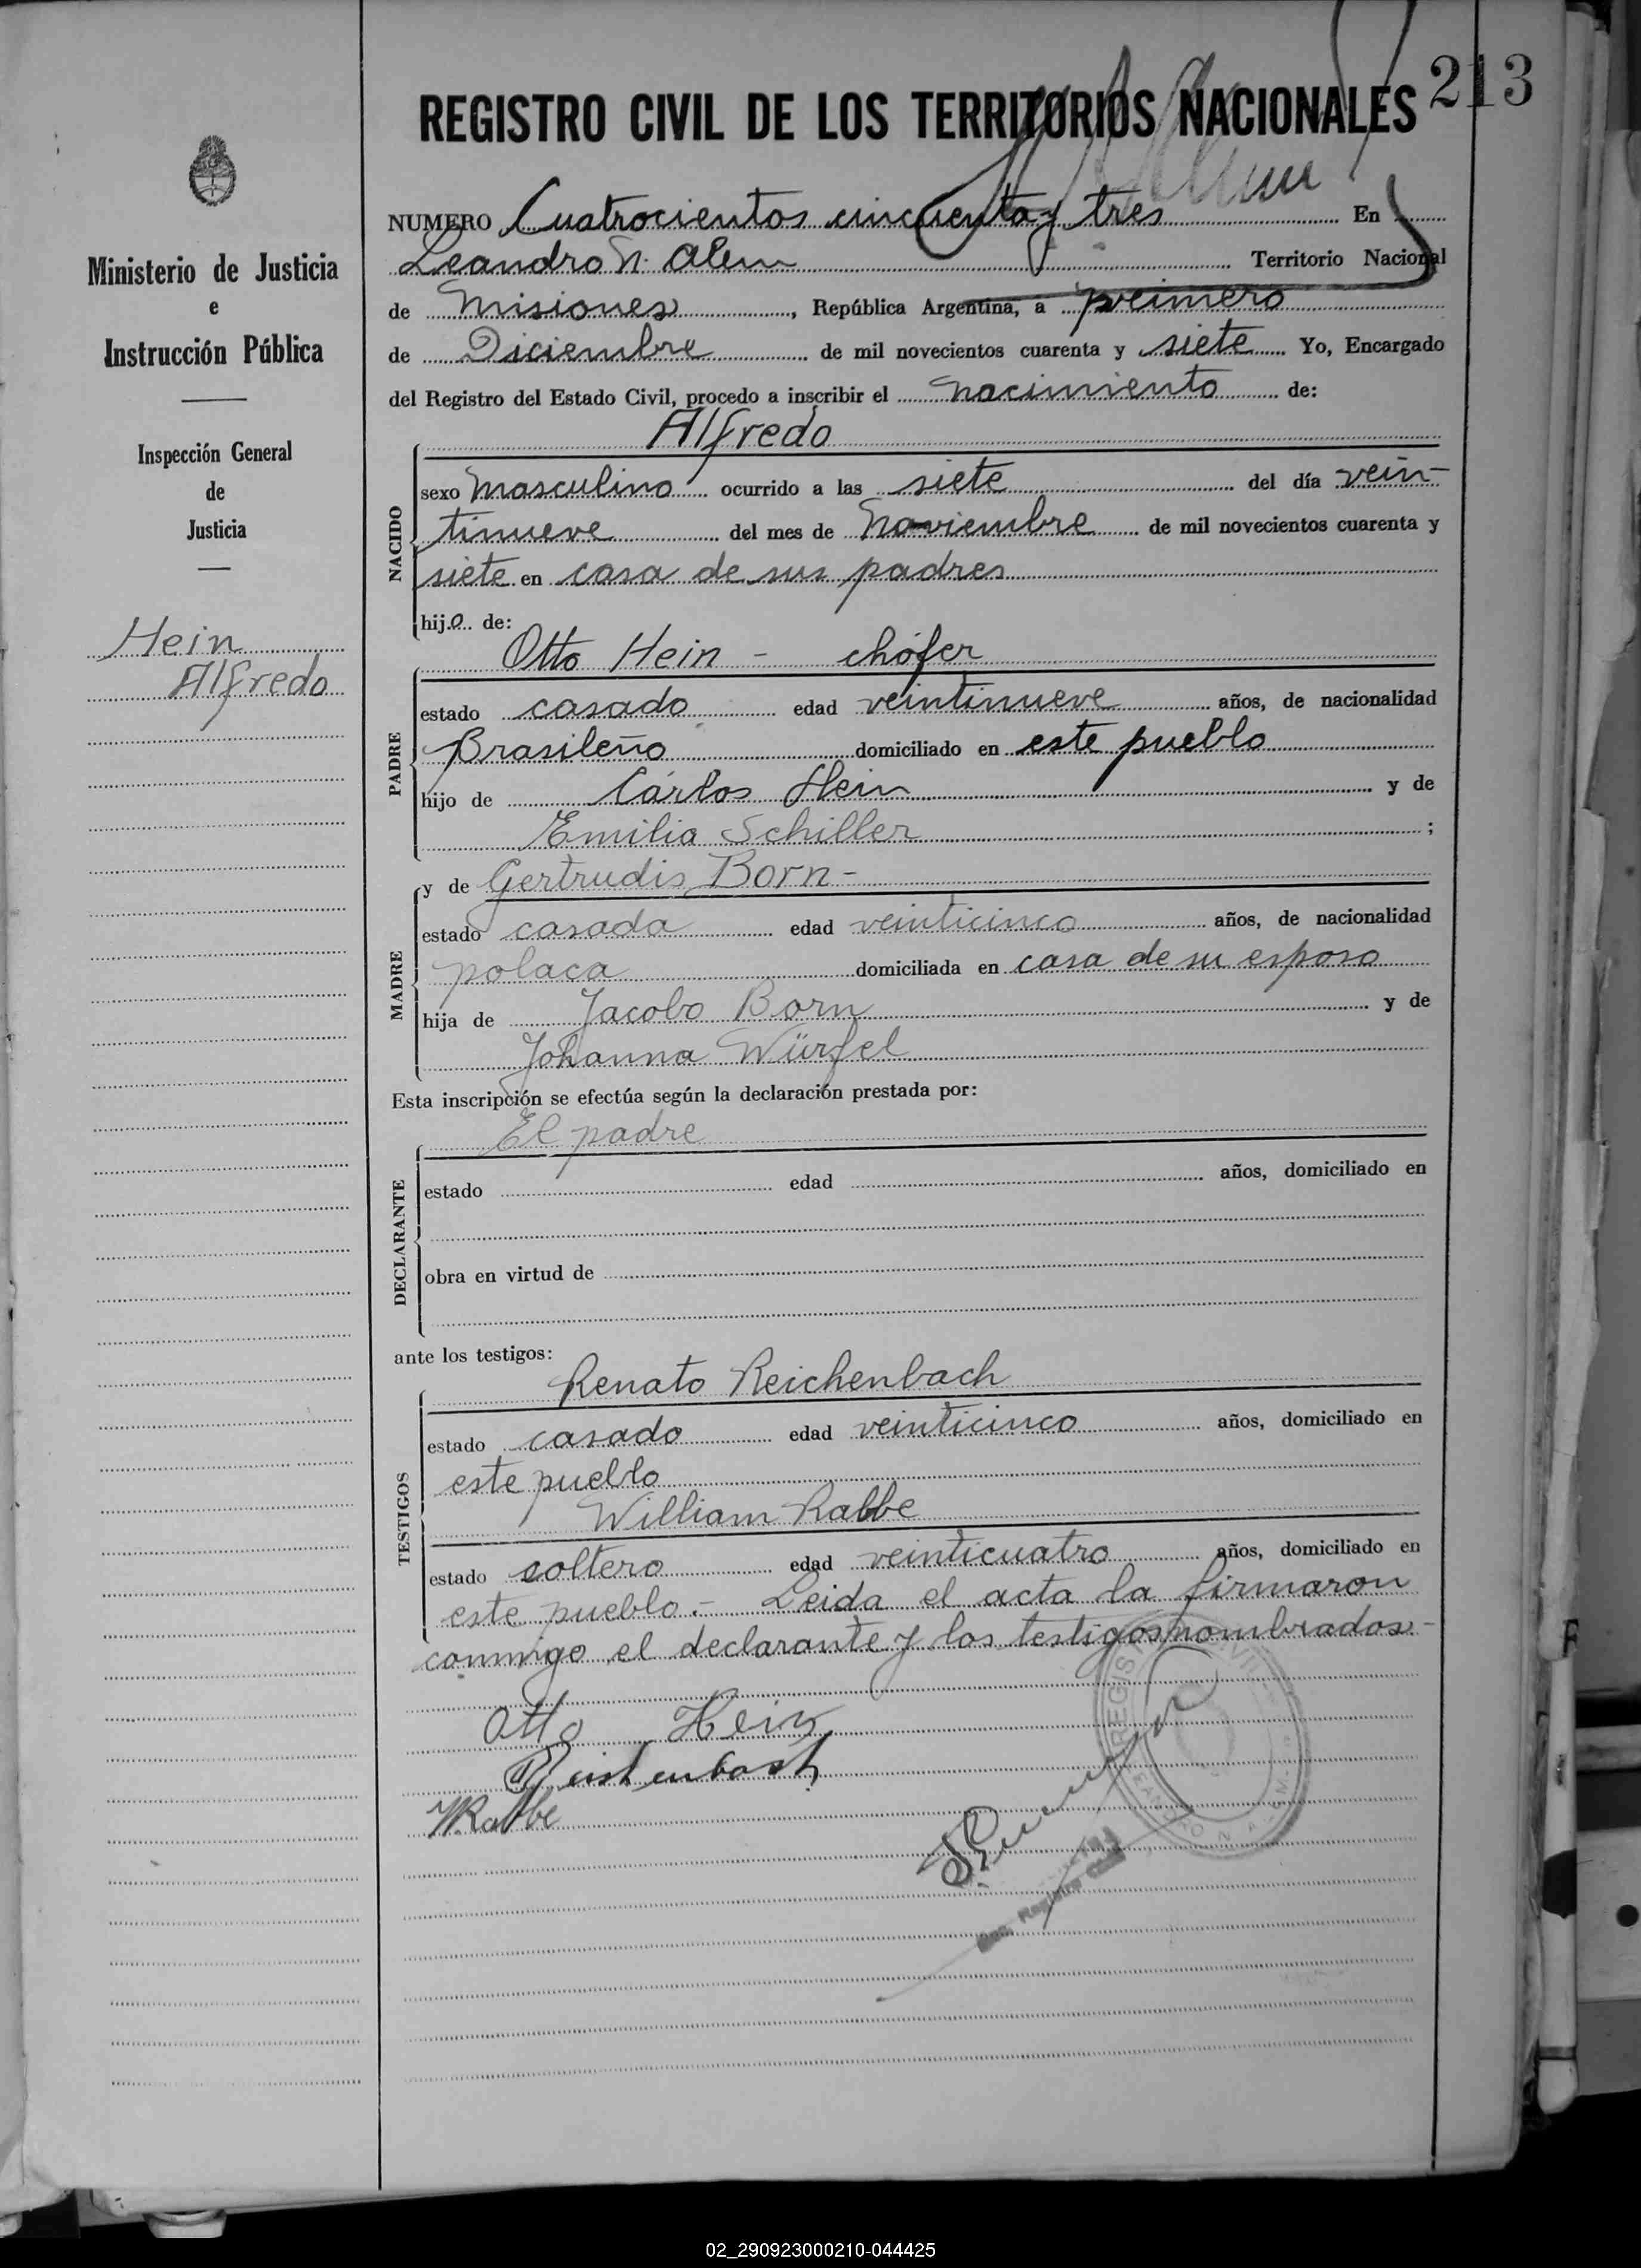 213
REGISTRO CIVIL DE LOS TERRITORIOS NACIONALES
Ministerio de Justicia
e
Instrucción Pública
Inspección General
de
Justicia
Hein
Alfredo
NUMERO Cuatrocientos cincuenta y tres En
Leandro N. Alem Territorio Nacional
de Misiones, República Argentina, a primero
de Diciembre de mil novecientos cuarenta y siete Yo, Encargado
del Registro del Estado Civil, procedo a inscribir el nacimiento de:
Alfredo
NACIDO
sexo Masculino ocurrido a las siete del día vein-
tinueve del mes de Noviembre de mil novecientos cuarenta y
siete en casa de sus padres
hijo de:
Otto Hein - chófer
PADRE
estado casado edad veintinueve años, de nacionalidad
Brasileño domiciliado en este pueblo
hijo de Cárlos Hein y de
Emilia Schiller ;
y de Gertrudis Born -
MADRE
estado casada edad veinticinco años, de nacionalidad
polaca domiciliada en casa de su esposo
hija de Jacobo Born y de
Johanna Würfel
Esta inscripción se efectúa según la declaración prestada por:
El padre
DECLARANTE
estado edad años, domiciliado en
obra en virtud de
ante los testigos:
Renato Reichenbach
TESTIGOS
estado casado edad veinticinco años, domiciliado en
este pueblo
William Rabbe
estado soltero edad veinticuatro años, domiciliado en
este pueblo.- Leida el acta la firmaron
conmigo el declarante y los testigos nombrados -
Otto Hein
Reichenbach
W.Rabbe
02_290923000210-044425